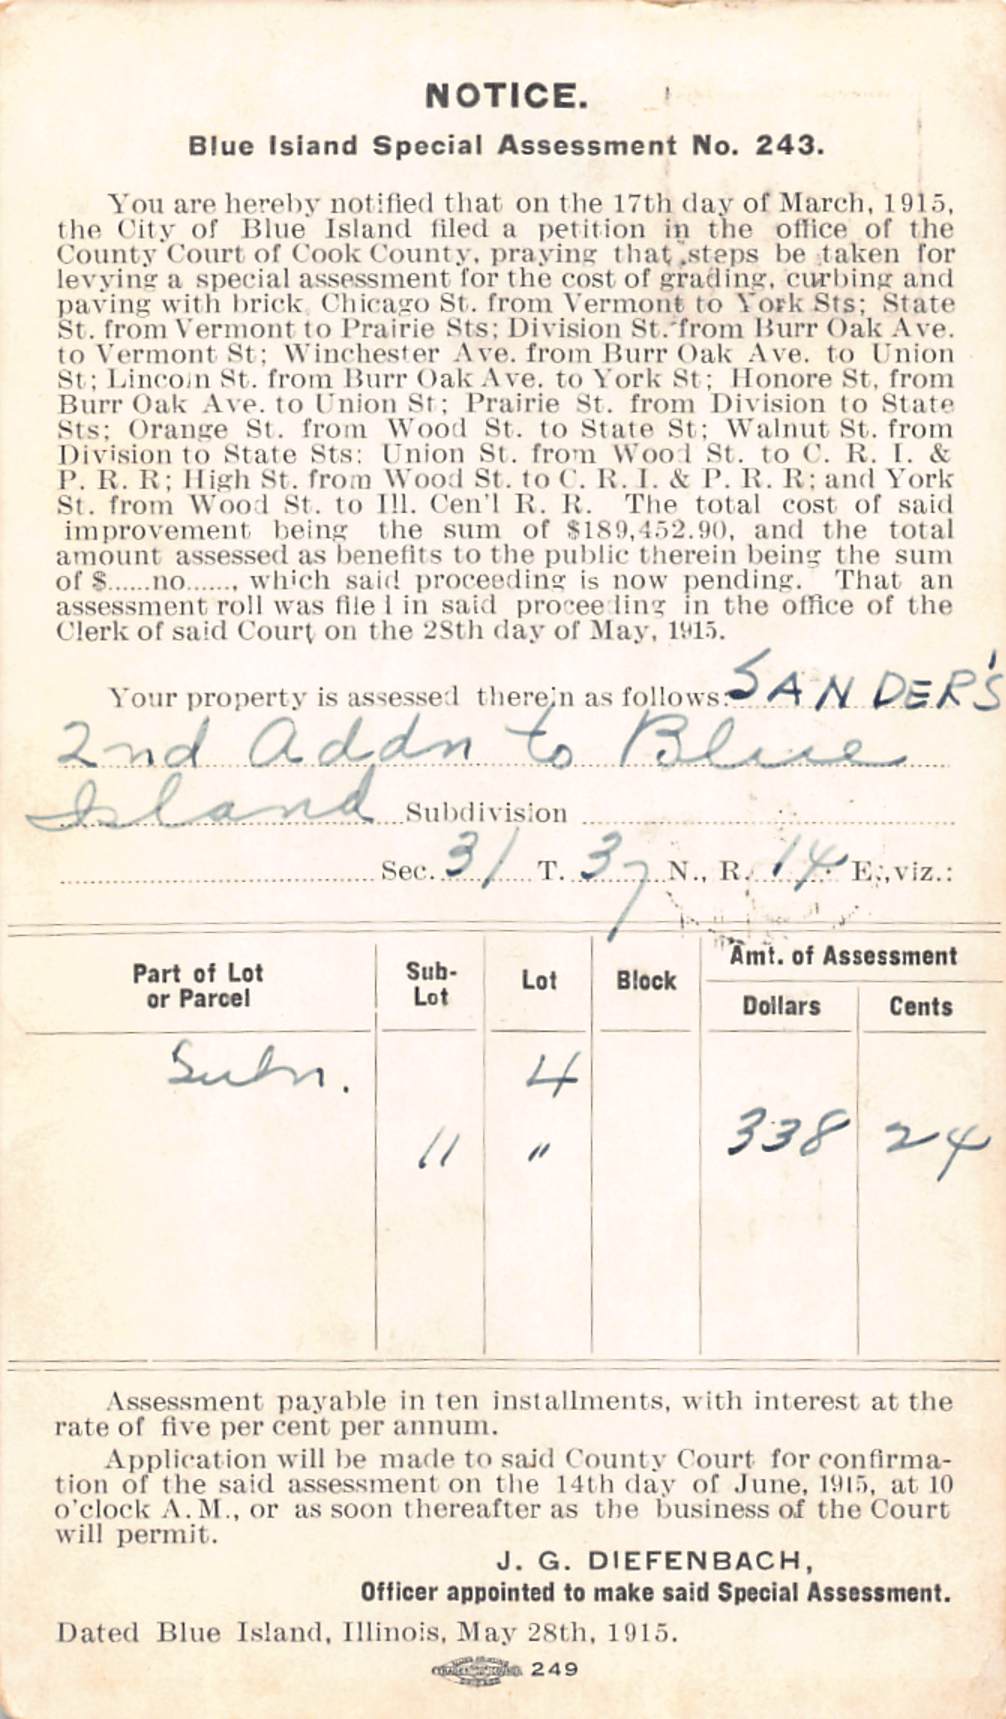 NOTICE.
Blue Island Special Assessment No. 243.
You are hereby notified that on the 17th day of March, 1915,
the City of Blue Island filed a petition in the office of the
County Court of Cook County, praying that steps be taken for
levying a special assessment for the cost of grading, curbing and
paving with brick, Chicago St. from Vermont to York Sts; State
St. from Vermont to Prairie Sts; Division St. from Burr Oak Ave.
to Vermont St; Winchester Ave. from Burr Oak Ave. to Union
St; Lincoln St. from Burr Oak Ave. to York St; Honore St, from
Burr Oak Ave. to Union St; Prairie St. from Division to State
Sts; Orange St. from Wood St. to State St; Walnut St. from
Division to State Sts; Union St. from Wood St. to C. R. I. &
P. R. R; High St. from Wood St. to C. R. I. & P. R. R; and York
St. from Wood St. to Ill. Cen'l R. R. The total cost of said
improvement being the sum of $189,452.90, and the total
amount assessed as benefits to the public therein being the sum
of $......no......, which said proceeding is now pending. That an
assessment roll was filed in said proceeding in the office of the
Clerk of said Court on the 28th day of May, 1915.
Your property is assessed therein as follows: SANDER'S
2nd Addn to Blue
Island Subdivision
Sec. 31 T. 37 N., R. 14 E., viz.:
Part of Lot or Parcel Sub-Lot Lot Block Amt. of Assessment
Dollars Cents
Subn. 4
11 " 338 24
Assessment payable in ten installments, with interest at the
rate of five per cent per annum.
Application will be made to said County Court for confirma-
tion of the said assessment on the 14th day of June, 1915, at 10
o'clock A. M., or as soon thereafter as the business of the Court
will permit.
J. G. DIEFENBACH,
Officer appointed to make said Special Assessment.
Dated Blue Island, Illinois, May 28th, 1915.
249